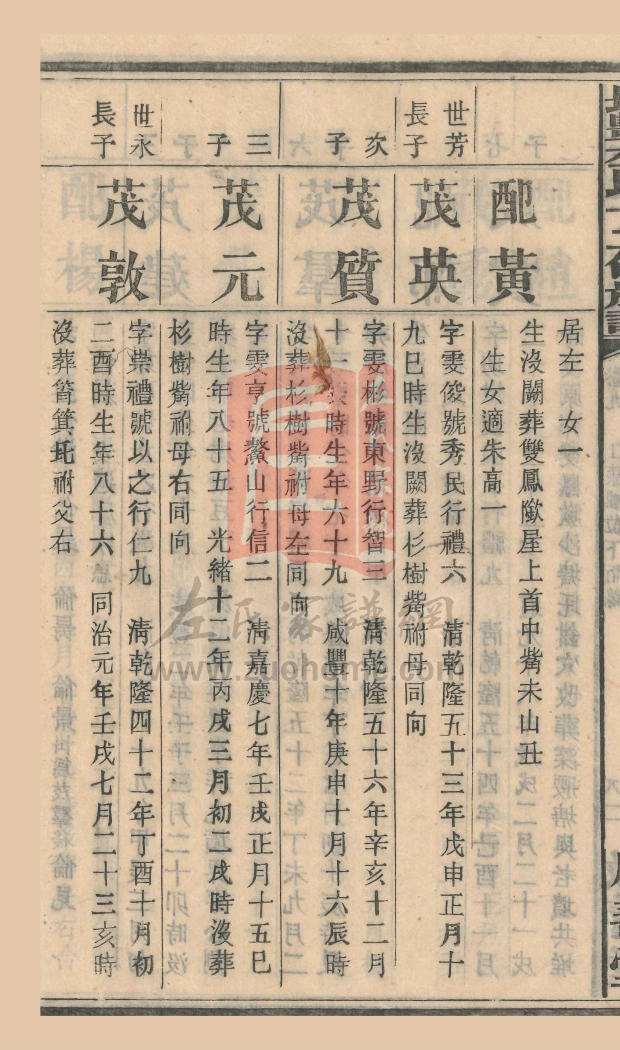 配黃
居左　女一
生沒闕葬雙鳳歘屋上首中觜未山丑
生女適朱高一
世芳
長子
茂英
字雯俊號秀民行禮六　清乾隆五十三年戊申正月十
九巳時生沒闕葬杉樹觜祔母同向
次
子
茂質
字雯彬號東野行智三　清乾隆五十六年辛亥十二月
時生年六十九　咸豐十年庚申十月十六辰時
沒葬杉樹觜祔母左同向
三
子
茂元
字雯亨號鰲山行信二　清嘉慶七年壬戌正月十五巳
時生年八十五　光緒十二年丙戌三月初二戌時沒葬
杉樹觜祔母右同向
世永
長子
茂敦
字崇禮號以之行仁九　清乾隆四十二年丁酉十月初
二酉時生年八十六　同治元年壬戌七月二十三亥時
沒葬筲箕坵祔父右
左氏家譜網
www.zuohome.com